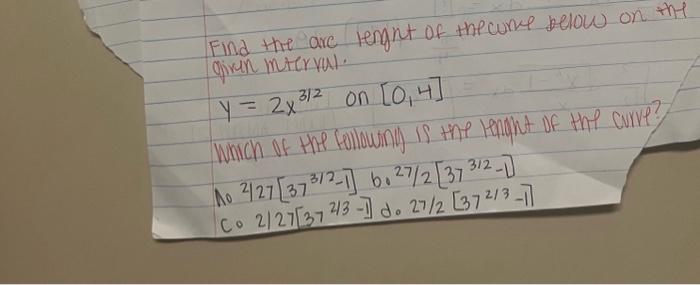 Find the arc lenght of the curve below on the
given interval.
y = 2x^3/2 on [0,4]
Which of the following is the lenght of the curve?
A. 2/27[37^3/2-1] b. 27/2[37^3/2-1]
C. 2/27[37^2/3-1] d. 27/2[37^2/3-1]